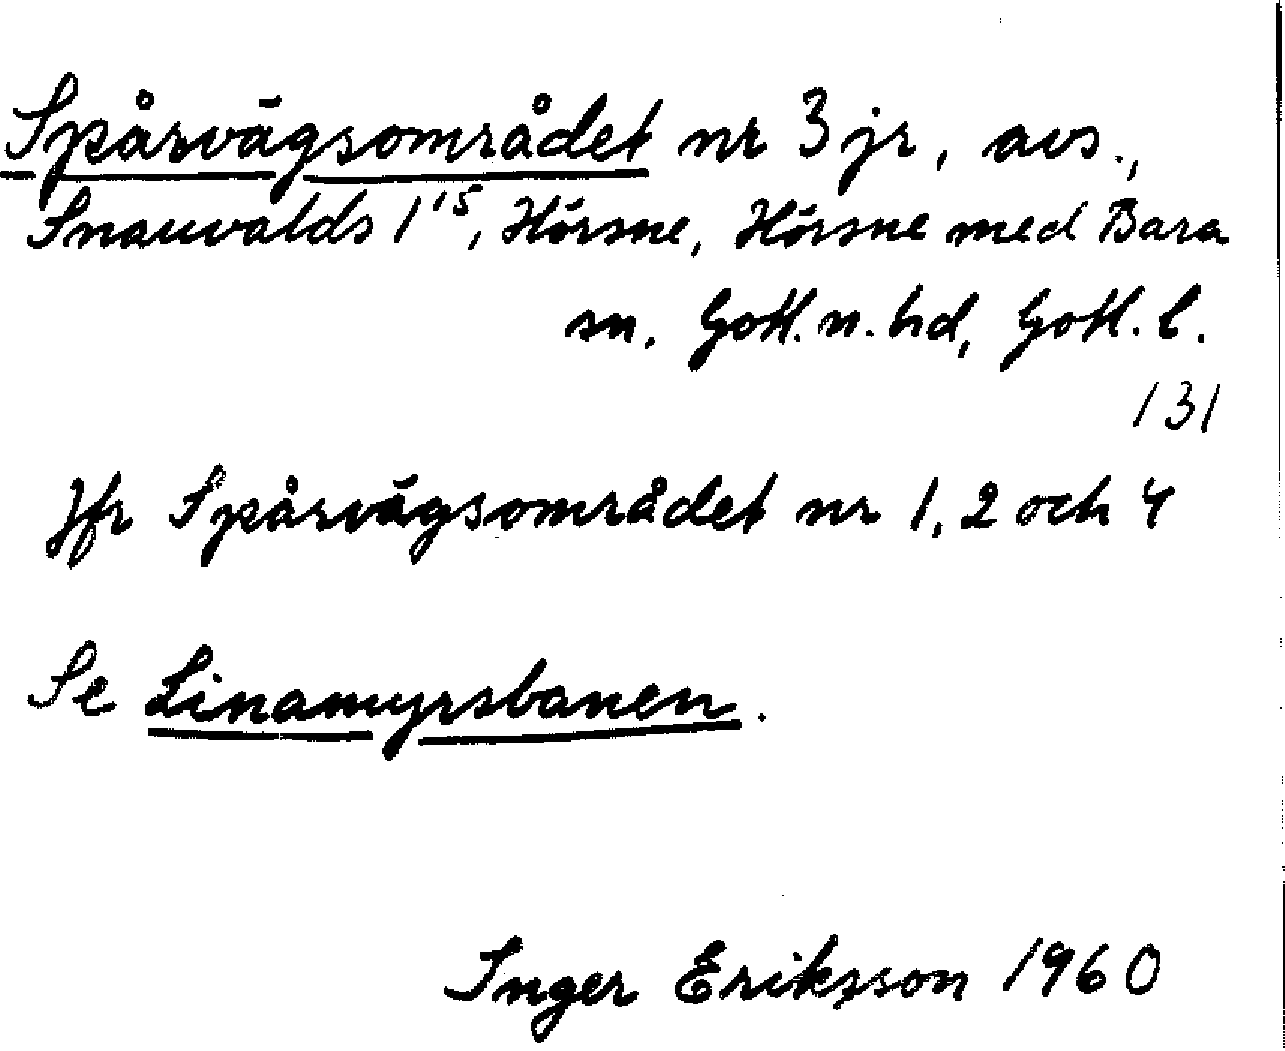 Spårvägsområdet nr 3 jr, avs.,
Snauvalds 1¹⁵, Hörsne, Hörsne med Bara
sn. Gotl. n. hd, Gotl. l.
131
Jfr Spårvägsområdet nr 1, 2 och 4
Se Linamyrsbanen.
Inger Eriksson 1960